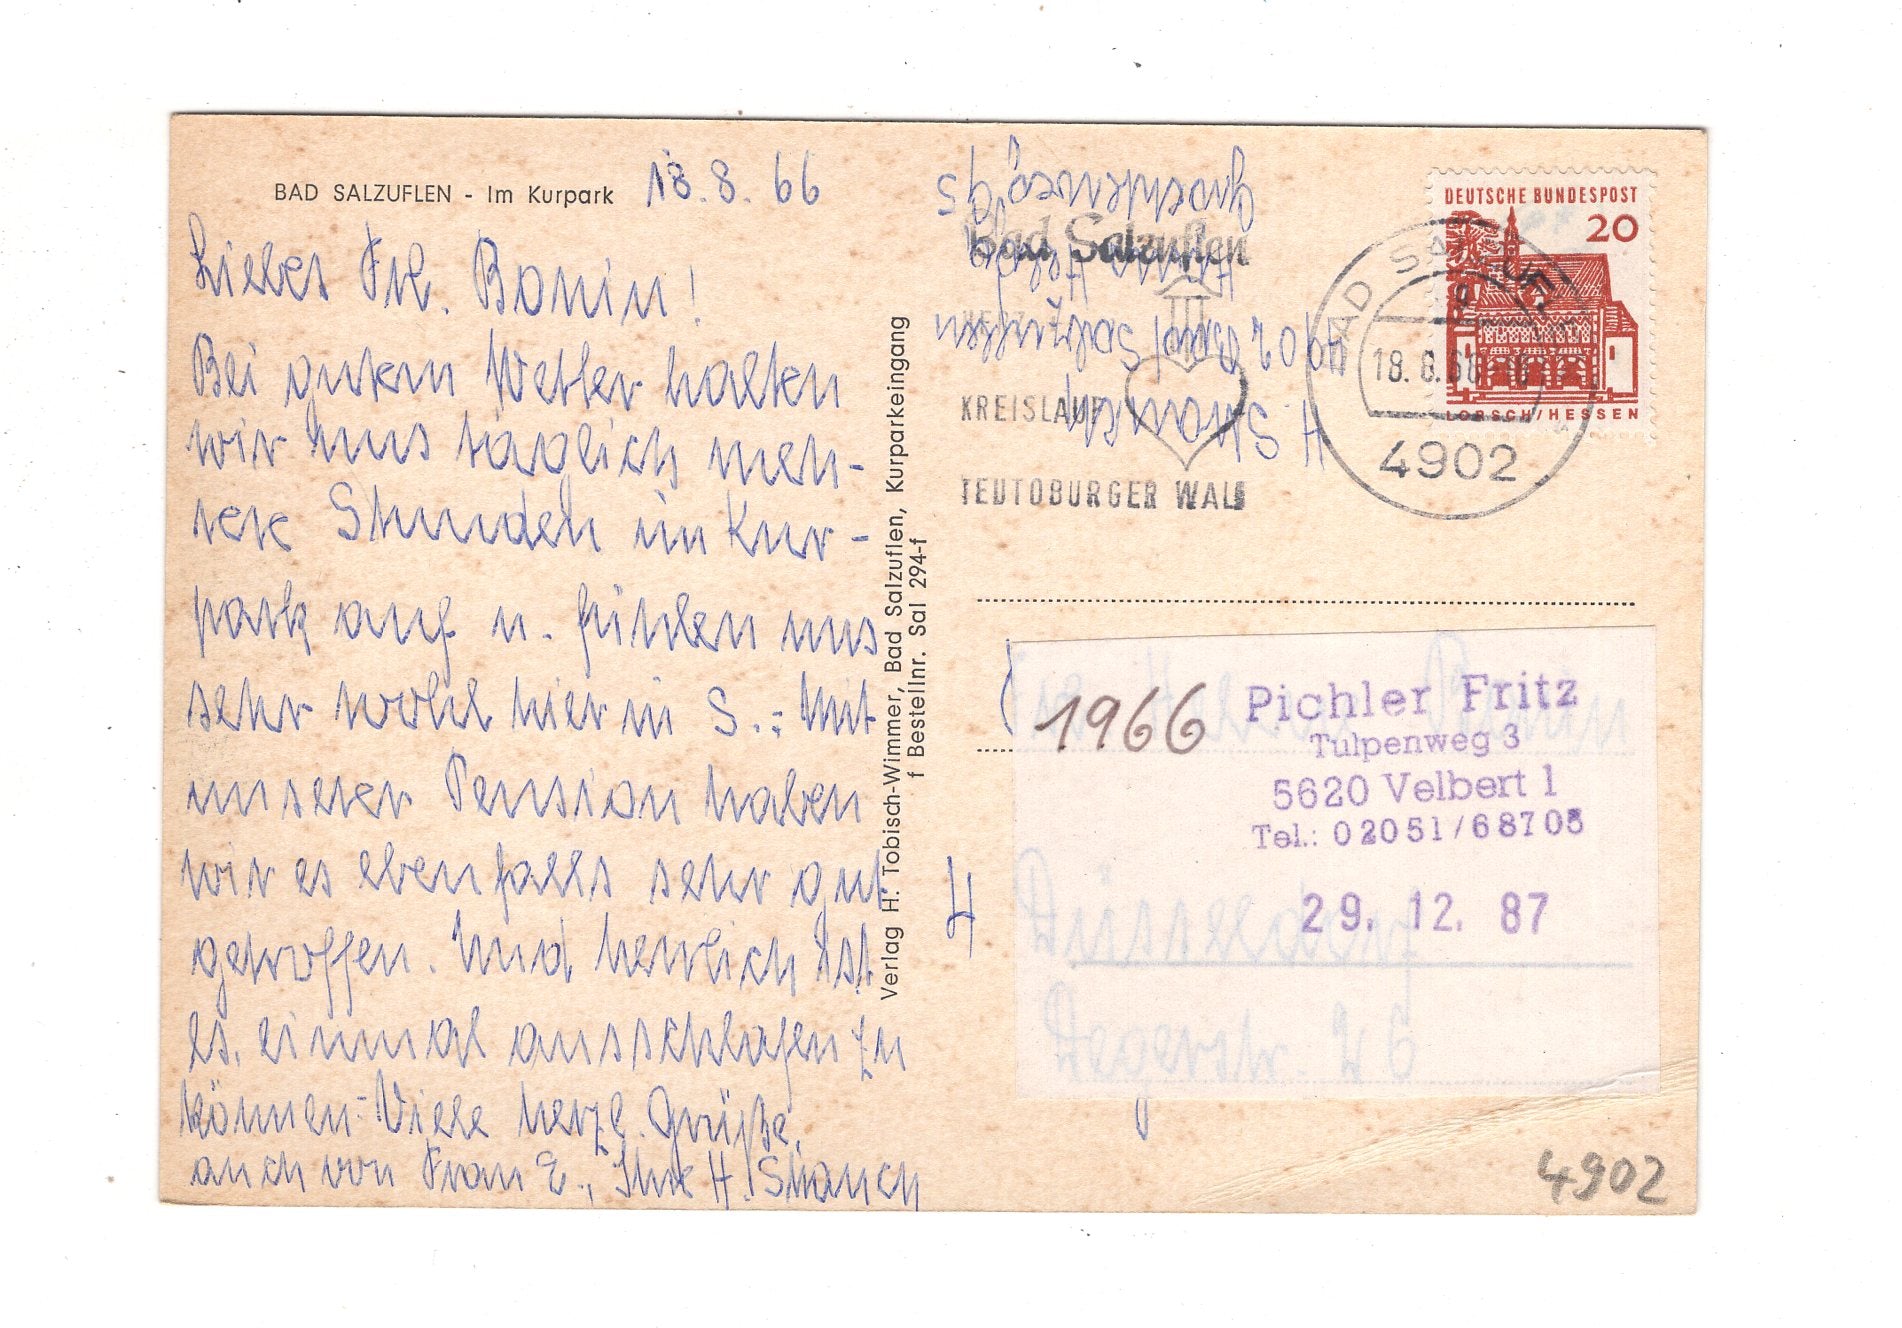 BAD SALZUFLEN - Im Kurpark
18.8.66
Liebes Frl. Bonin!
Bei gutem Wetter halten
wir uns täglich meh-
rere Stunden im Kur-
park auf u. fühlen uns
sehr wohl hier in S.: Mit
unserer Pension haben
wir es ebenfalls sehr gut
getroffen. Und herrlich ist
es, einmal ausschlafen zu
können. Viele herzl. Grüße,
auch von Frau E., Ihre H. Strauch
Verlag H. Tobisch-Wimmer, Bad Salzuflen, Kurparkeingang
f Bestellnr. Sal 294-f
H. Strauch
4902 Bad Salzuflen
Haus
95
Bad Salzuflen
HERZ
KREISLAUF
TEUTOBURGER WALD
DEUTSCHE BUNDESPOST
20
LORSCH/HESSEN
BAD SALZUFLEN
18.8.66
4902
1966
Pichler Fritz
Tulpenweg 3
5620 Velbert 1
Tel.: 02051/68705
29. 12. 87
Düsseldorf
Degerstr. 26
4902